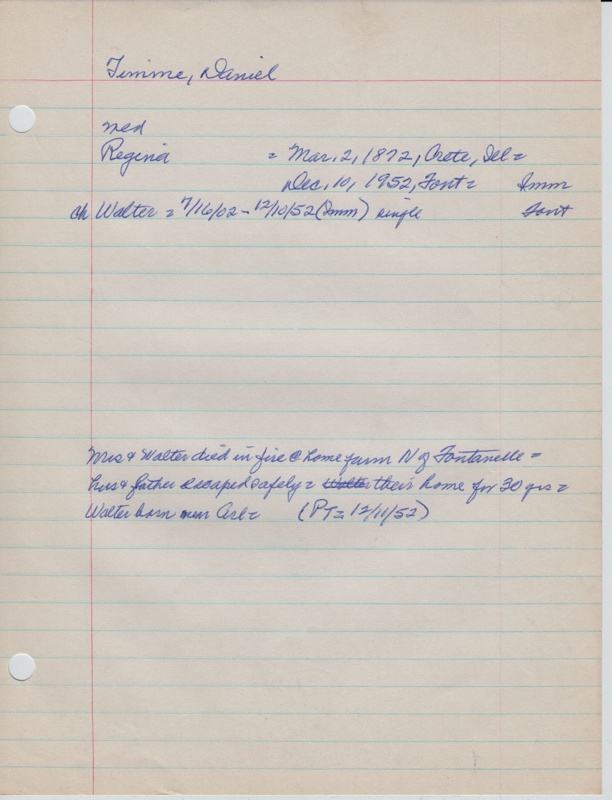 Timme, Daniel
med
Regina = Mar. 2, 1872, Crete, Ill =
Dec. 10, 1952, Font = Imm
ch Walter = 7/16/02 - 12/10/52 (Imm) single Font
Mrs & Walter died in fire @ home farm N of Fontanelle =
hus & father escaped safely = their home for 30 yrs =
Walter born near Arl = (PT = 12/11/52)